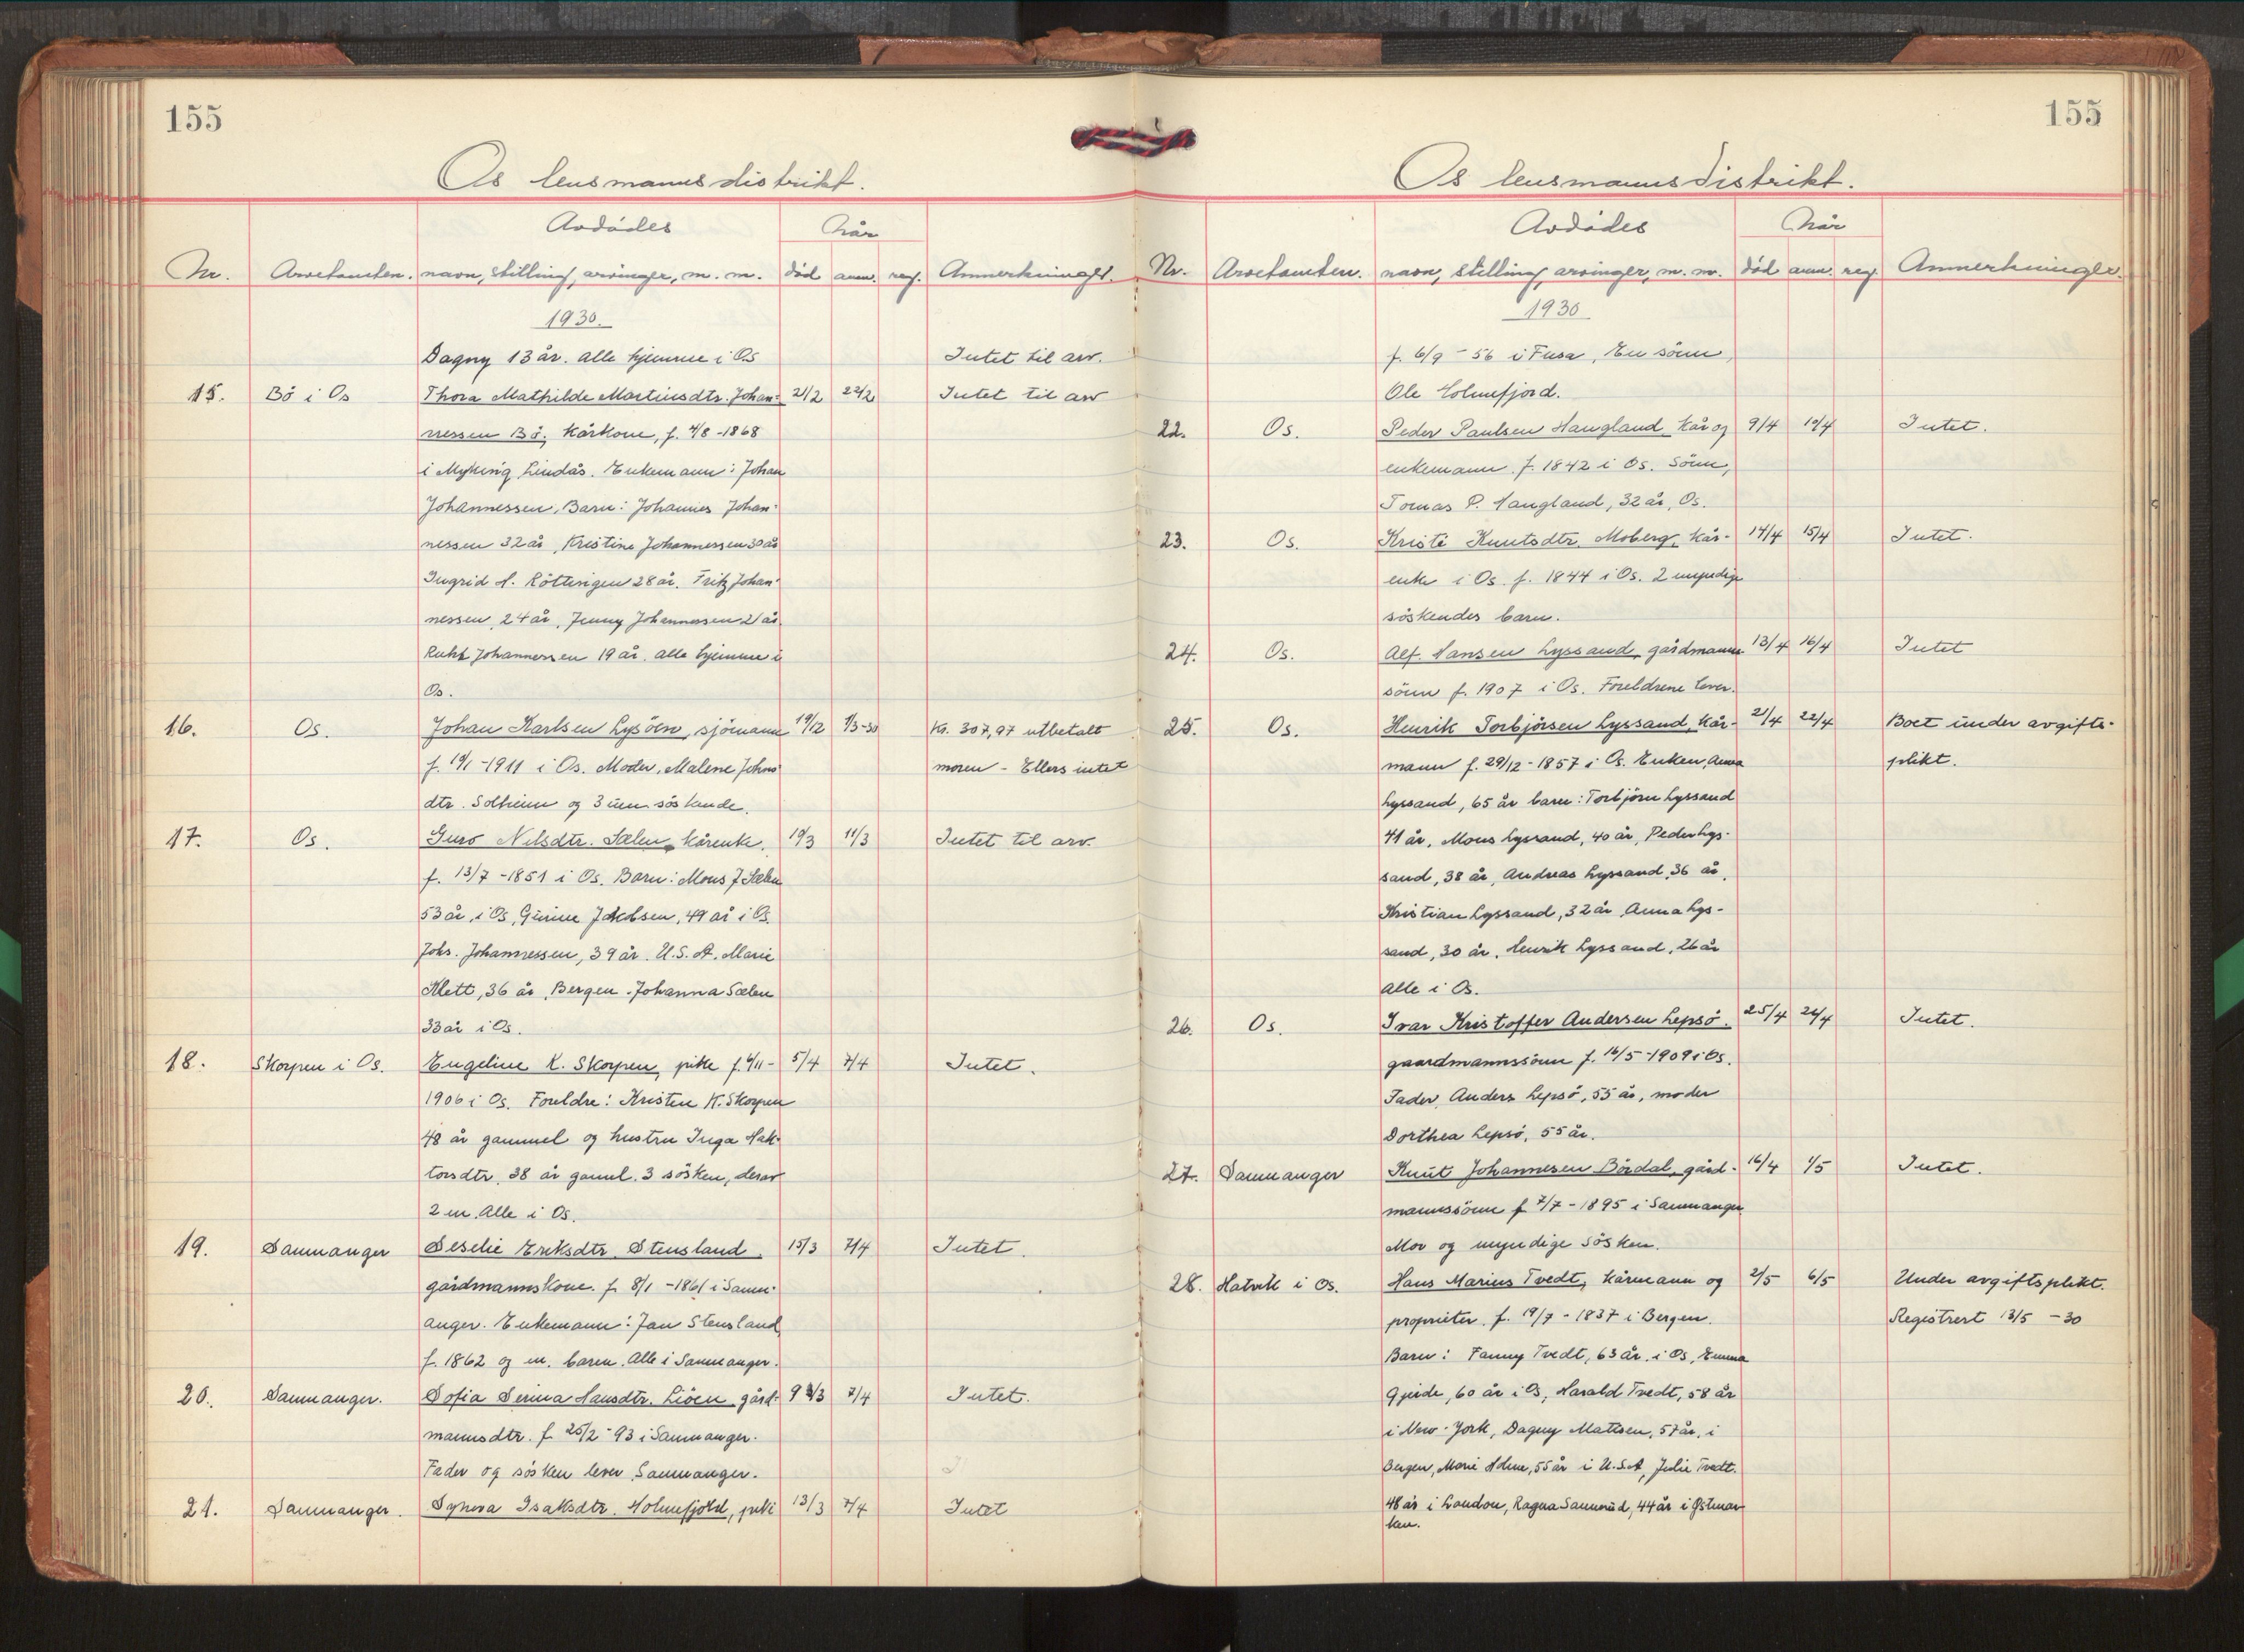 155
Os lensmannsdistrikt.
Avdødes
Når
Nr. Arvetomten. navn, stilling, arvinger, m. m. død anm. reg. Anmerkninger.
1930.
Dagny 13 år. alle hjemme i Os Intet til arv.
15. Bö i Os Thora Mathilde Martinsdtr. Johan- 21/2 22/2 Intet til arv
nessen Bö, Kårkone, f. 4/8 -1868
i Myking Lindås. Enkemann: Johan
Johannessen, Barn: Johannes Johan-
nessen 32 år, Kristine Johannessen 30 år
Ingrid A. Röttingen 28 år. Fritz Johan-
nessen, 24 år, Jenny Johannessen 21 år.
Ruht Johannessen 19 år. alle hjemme i
Os.
16. Os. Johan Karlsen Lysöen, sjömann 19/12 1/3-30 Kr. 307,97 utbetalt
f. 19/1 -1911 i Os. Moder, Malene Johns- moren - Ellers intet
dtr. Solheim og 3 um. söskende.
17. Os. Guro Nilsdtr. Sælen, kårenke. 10/3 11/3 Intet til arv.
f. 13/7 -1851 i Os. Barn: Mons J Sælen
53 år, i Os, Gurine Jakobsen, 49 år i Os.
Johs. Johannessen, 39 år. U.S.A. Marie
Klett, 36 år, Bergen. Johanna Sælen
33 år i Os.
18. Skorpen i Os. Engeline K. Skorpen, pike f. 4/11 - 5/4 7/4 Intet.
1906 i Os. Foreldre: Kristen K. Skorpen
48 år gammel og hustru Inga Hak-
torsdtr. 38 år gaml. 3 sösken, derav
2 m. Alle i Os.
19. Samnanger Seselie Eriksdtr. Stensland. 15/3 7/4 Intet.
gårdmannskone. f. 8/1 -1861 i Samn-
anger. Enkemann: Jan Stensland
f. 1862 og m. barn. Alle i Samnanger.
20. Samnanger. Sofia Serina Hansdtr. Liöen gård- 9/3 7/4 Intet.
mannsdtr. f. 25/2 -93 i Samnanger.
Fader og sösken lever Samnanger.
21. Samnanger. Synova Isaksdtr. Holmefjord, pike 13/3 7/4 Intet
155
Os lensmannsdistrikt.
Avdødes
Når
Nr. Arvetomten. navn, stilling, arvinger, m. m. död anm. reg. Anmerkninger.
1930
f. 6/9 - 56 i Fusa, En sönn,
Ole Holmefjord.
22. Os. Peder Paulsen Haugland Kår og 9/4 10/4 Intet.
enkemann. f. 1842 i Os. Sönn,
Tomas P. Haugland, 32 år, Os.
23. Os. Kristi Knutsdtr. Moberg, kår- 14/4 15/4 Intet.
enke i Os f. 1844 i Os. 2 myndige
söskendes barn.
24. Os. Alf. Hansen Lyssand, gårdmanns 13/4 16/4 Intet
sönn f. 1907 i Os. Foreldrene lever.
25. Os. Henrik Torbjörsen Lyssand, kår- 21/4 22/4 Boet under avgifts-
mann f. 29/12 - 1857 i Os. Enken, Anna plikt.
Lyssand, 65 år barn: Torbjörn Lyssand
41 år, Mons Lyssand, 40 år, Peder Lys-
sand, 38 år, Andreas Lyssand, 36 år,
Kristian Lyssand, 32 år Anna Lys-
sand, 30 år, Henrik Lyssand, 26 år
alle i Os.
26. Os. Ivar Kristoffer Andersen Lepsö. 25/4 26/4 Intet.
gaardmannssönn f. 16/5 -1909 i Os.
Fader, Anders Lepsö, 55 år, moder
Dorthea Lepsö, 55 år.
27. Samnanger Knut Johannesen Bördal, gård- 16/4 1/5 Intet.
mannssönn f 7/7 - 1895 i Samnanger
Mor og myndige sösken.
28. Hatvik i Os. Hans Marius Tvedt, kårmann og 2/5 6/5 Under avgiftsplikt.
proprietær. f. 19/7 - 1837 i Bergen. Registrert 13/5 - 30
Barn: Fanny Tvedt, 63 år. i Os, Emma
Gjeide, 60 år i Os, Harald Tvedt, 58 år
i New-York, Dagny Mattsen, 57 år, i
Bergen, Marie Holme, 55 år i U.S.A, Julie Tvedt.
48 år i London, Ragna Samnud, 44 år i Østmar-
ken.